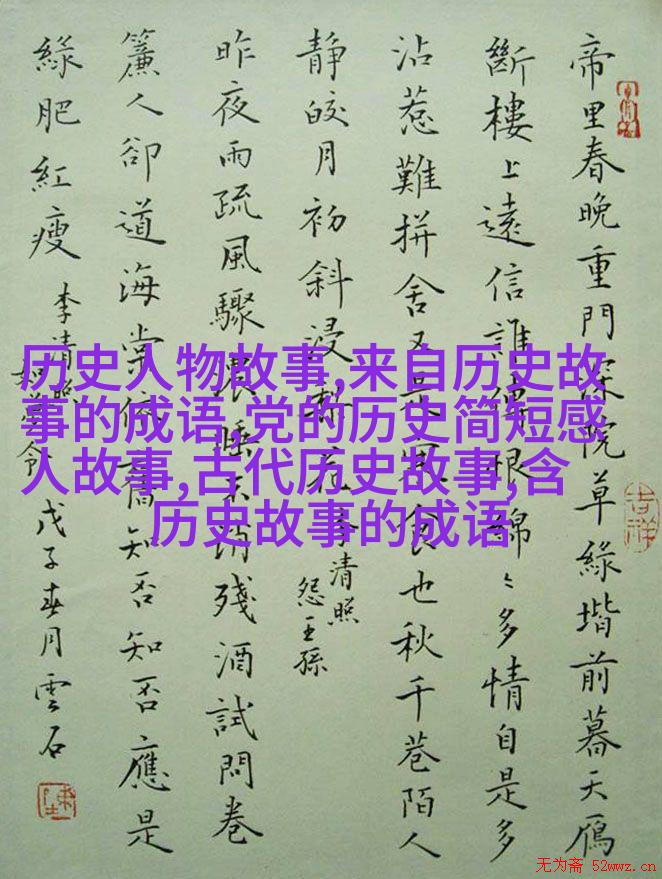 历史人物故事,来自历史故
事的成语,党的历史简短感
人故事,古代历史故事,含
历史故事的成语
帝里春晚重門深院草綠堦前暮天鴈
斷樓上遠信誰傳恨綿〻多情自是多
沾惹難拚舍又是寒食也秋千巷陌人
靜皎月初斜浸梨花 李清照
怨王孫
昨夜雨疏風驟濃睡不消殘酒試問卷
簾人卻道海棠依舊知否知否應是
綠肥紅瘦 李清照
如夢令
戊子春月雲石
吉祥
无为斋 52wwz.cn